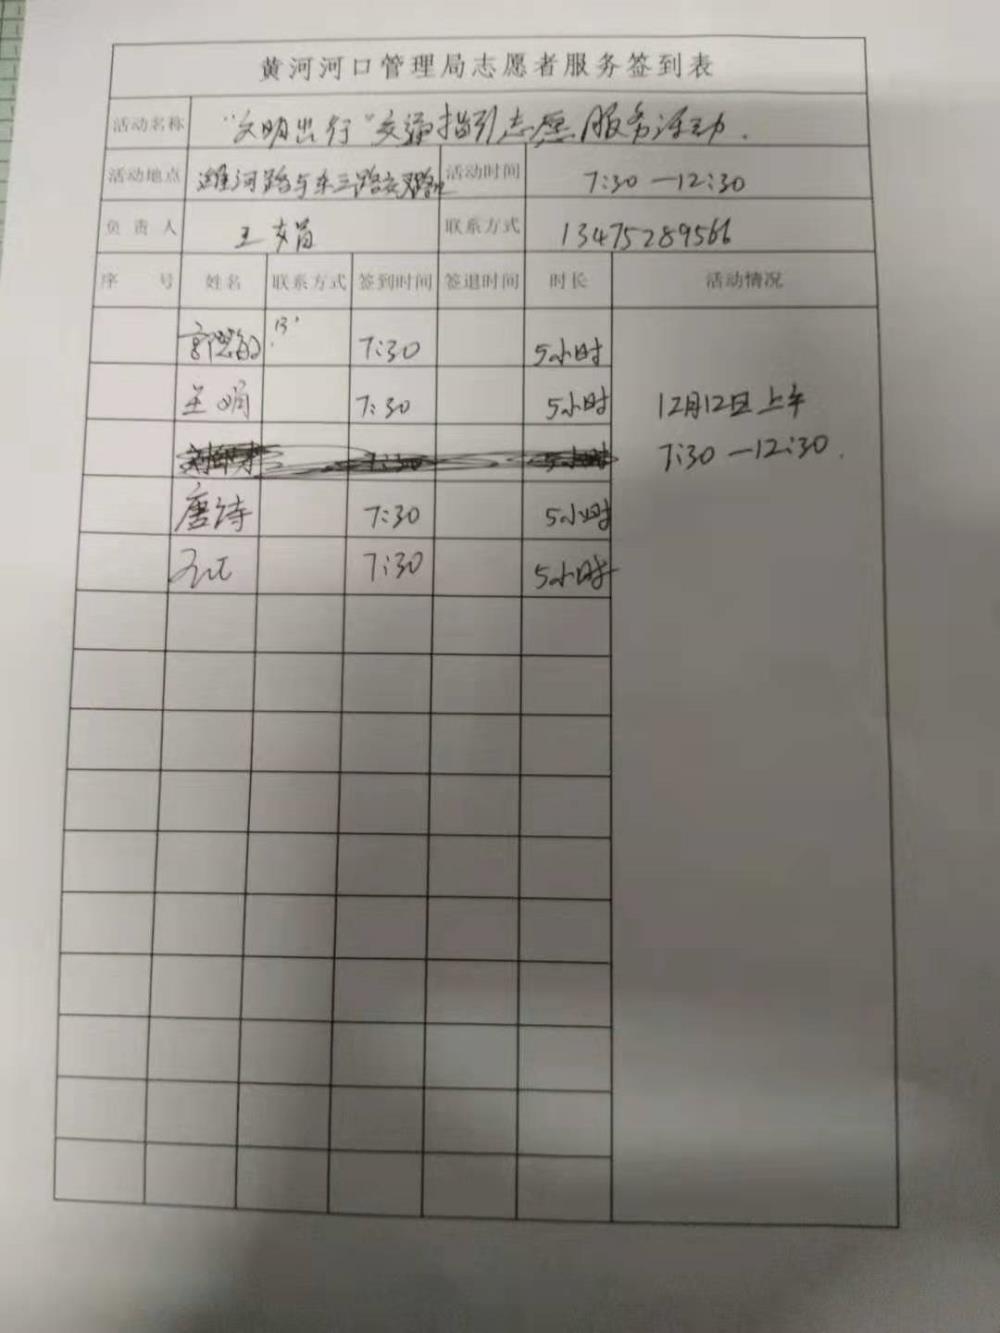 黄河河口管理局志愿者服务签到表
活动名称 "文明出行"交通指引志愿服务活动.
活动地点 潍河路与东三路交叉路口 活动时间 7:30—12:30
负责人 王 联系方式 13475289566
序号 姓名 联系方式 签到时间 签退时间 时长 活动情况
13' 7:30 5小时
王娟 7:30 5小时 12月12日上午
7:30 5小时 7:30—12:30.
唐诗 7:30 5小时
7:30 5小时